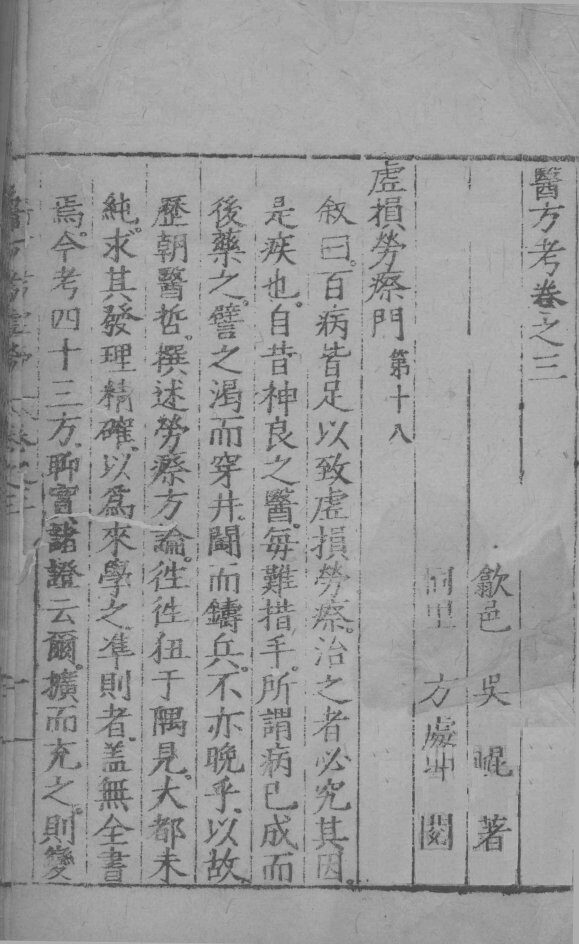 醫方考卷之三
歙邑 吳 崐 著
同里 方處中 閱
虛損勞瘵門 第十八
叙曰。百病皆足以致虛損勞瘵。治之者必究其因。
是疾也。自昔神良之醫。每難措手。所謂病已成而
後藥之。譬之渴而穿井。鬪而鑄兵。不亦晚乎。以故
歷朝醫哲。撰述勞瘵方論。徃徃狃于隅見。大都未
純。求其發理精確。以爲來學之準則者。盖無全書
焉。今考四十三方。聊實諸證云爾。擴而充之。則變